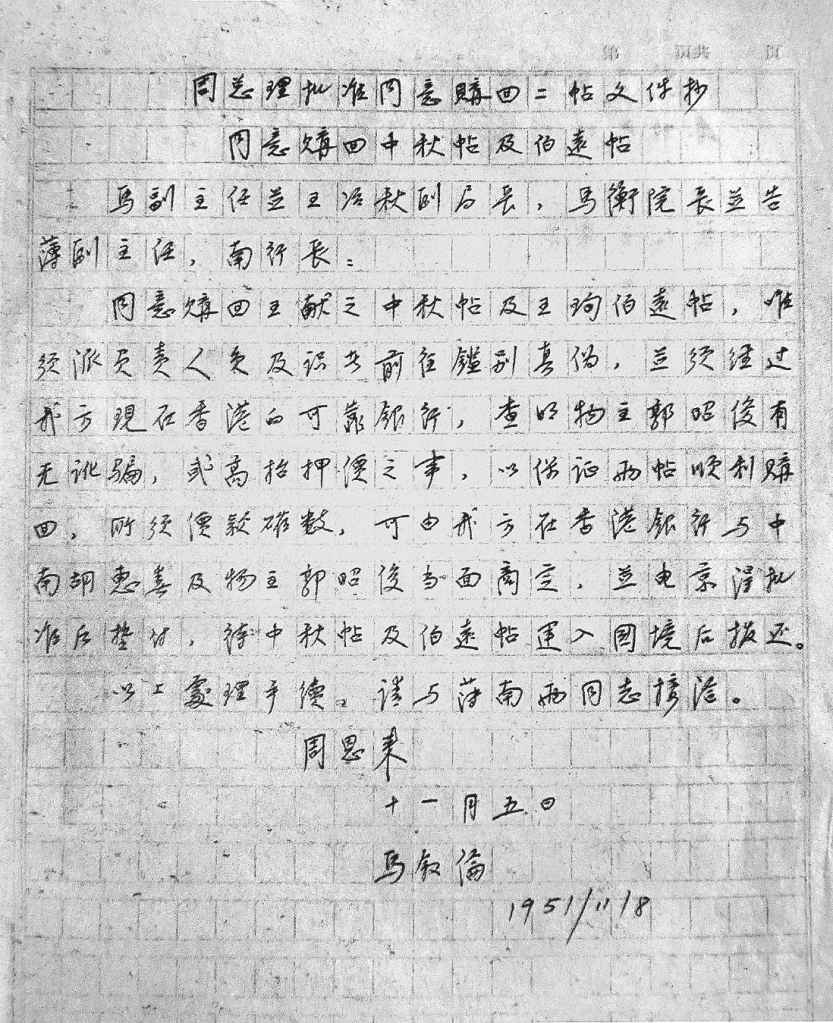 周总理批准同意購回二帖文件抄
同意購回中秋帖及伯遠帖
马副主任並王冶秋副局长，马衡院长並告
薄副主任，南行长：
同意購回王献之中秋帖及王珣伯遠帖，唯
须派负责人员及识者前往鑑别真伪，並须经过
我方現在香港的可靠銀行，查明物主郭昭俊有
无讹骗，或高抬押價之事，以保证兩帖顺利購
回。所须價款确数，可由我方在香港銀行与中
南胡惠春及物主郭昭俊当面商定，並电京请批
准后垫付，待中秋帖及伯遠帖運入國境后拨还。
以上處理手续，请与薄南兩同志接洽。
周恩来
十一月五日
马叙倫
1951/11/8